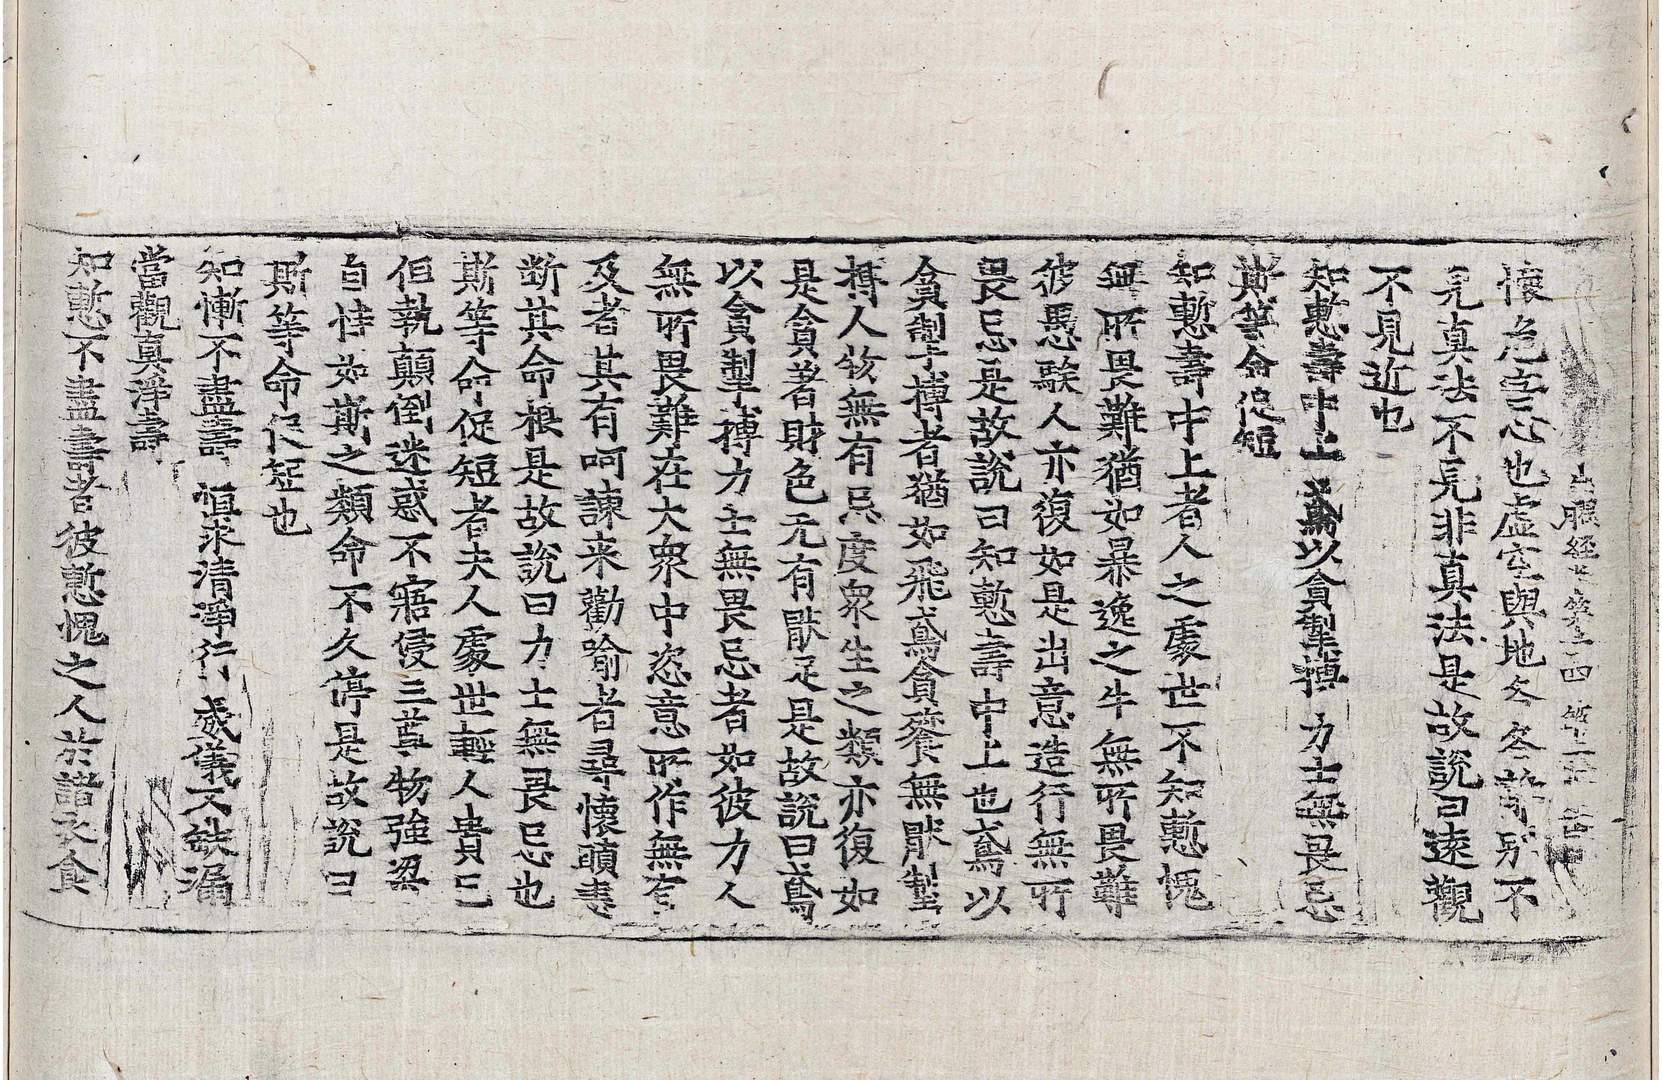 出曜経 卷第二十四 第十二張 
懷危害忘也虛空與地各各離別不
見真法不見非真法是故說曰遠觀
不見近也
知慙壽中上 鳶以貪掣搏 力士無畏忌
斯等命促短
知慙壽中上者人之處世不知慙愧
無所畏難猶如暴逸之牛無所畏難
彼愚騃人亦復如是出意造行無所
畏忌是故說曰知慙壽中上也鳶以
貪掣搏者猶如飛鳶貪餮無猒掣
搏人物無有忌度眾生之類亦復如
是貪著財色无有猒足是故說曰鳶
以貪掣搏力士無畏忌者如彼力人
無所畏難在大眾中恣意所作無有
及者其有呵諫来勸喻者尋懷瞋恚
断其命根是故說曰力士無畏忌也
斯等命促短者夫人處世輕人貴己
但執顛倒迷惑不寤侵三尊物強梁
自恃如斯之類命不久停是故說曰
斯等命促短也
知慚不盡壽 恒求清淨行 威儀不缺漏
當觀真淨壽
知慙不盡壽者彼慙愧之人於諸衣食